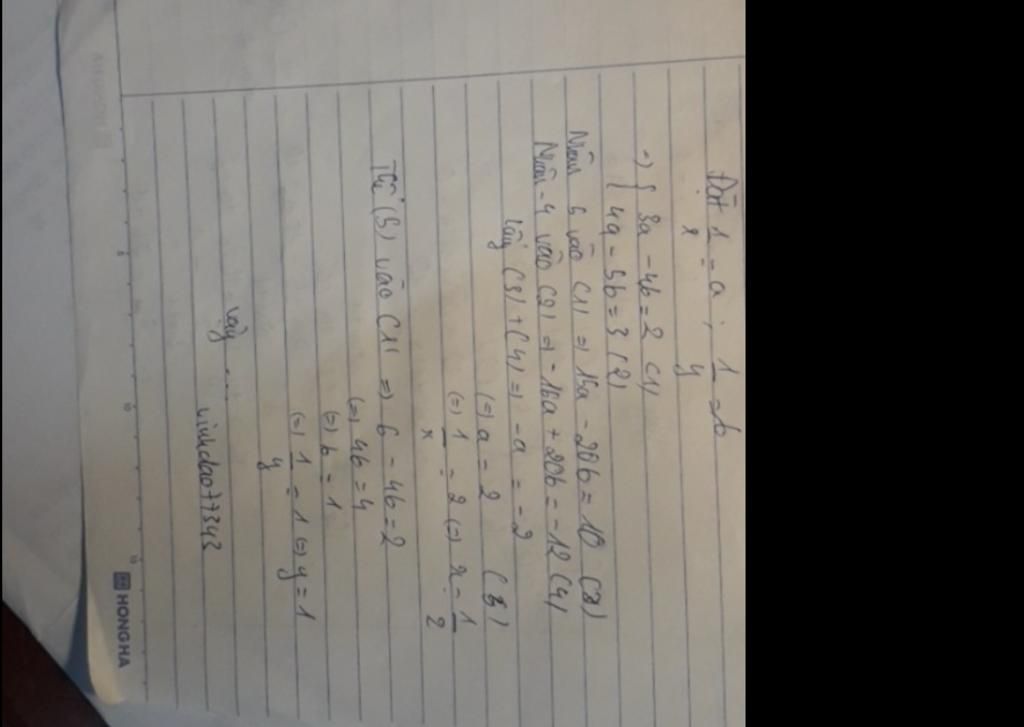 Đặt 1/x = a ; 1/y = b
=) { 3a - 4b = 2 (1)
{ 4a - 5b = 3 (2)
Nhân 5 vào (1) =) 15a - 20b = 10 (3)
Nhân -4 vào (2) =) -16a + 20b = -12 (4)
Lấy (3) + (4) =) -a = -2
(=) a = 2 (5)
(=) 1/x = 2 (=) x = 1/2
Thế (5) vào (1) =) 6 - 4b = 2
(=) 4b = 4
(=) b = 1
(=) 1/y = 1 (=) y = 1
Vậy ...
vinhdao77343
HONG HA
5
10
15